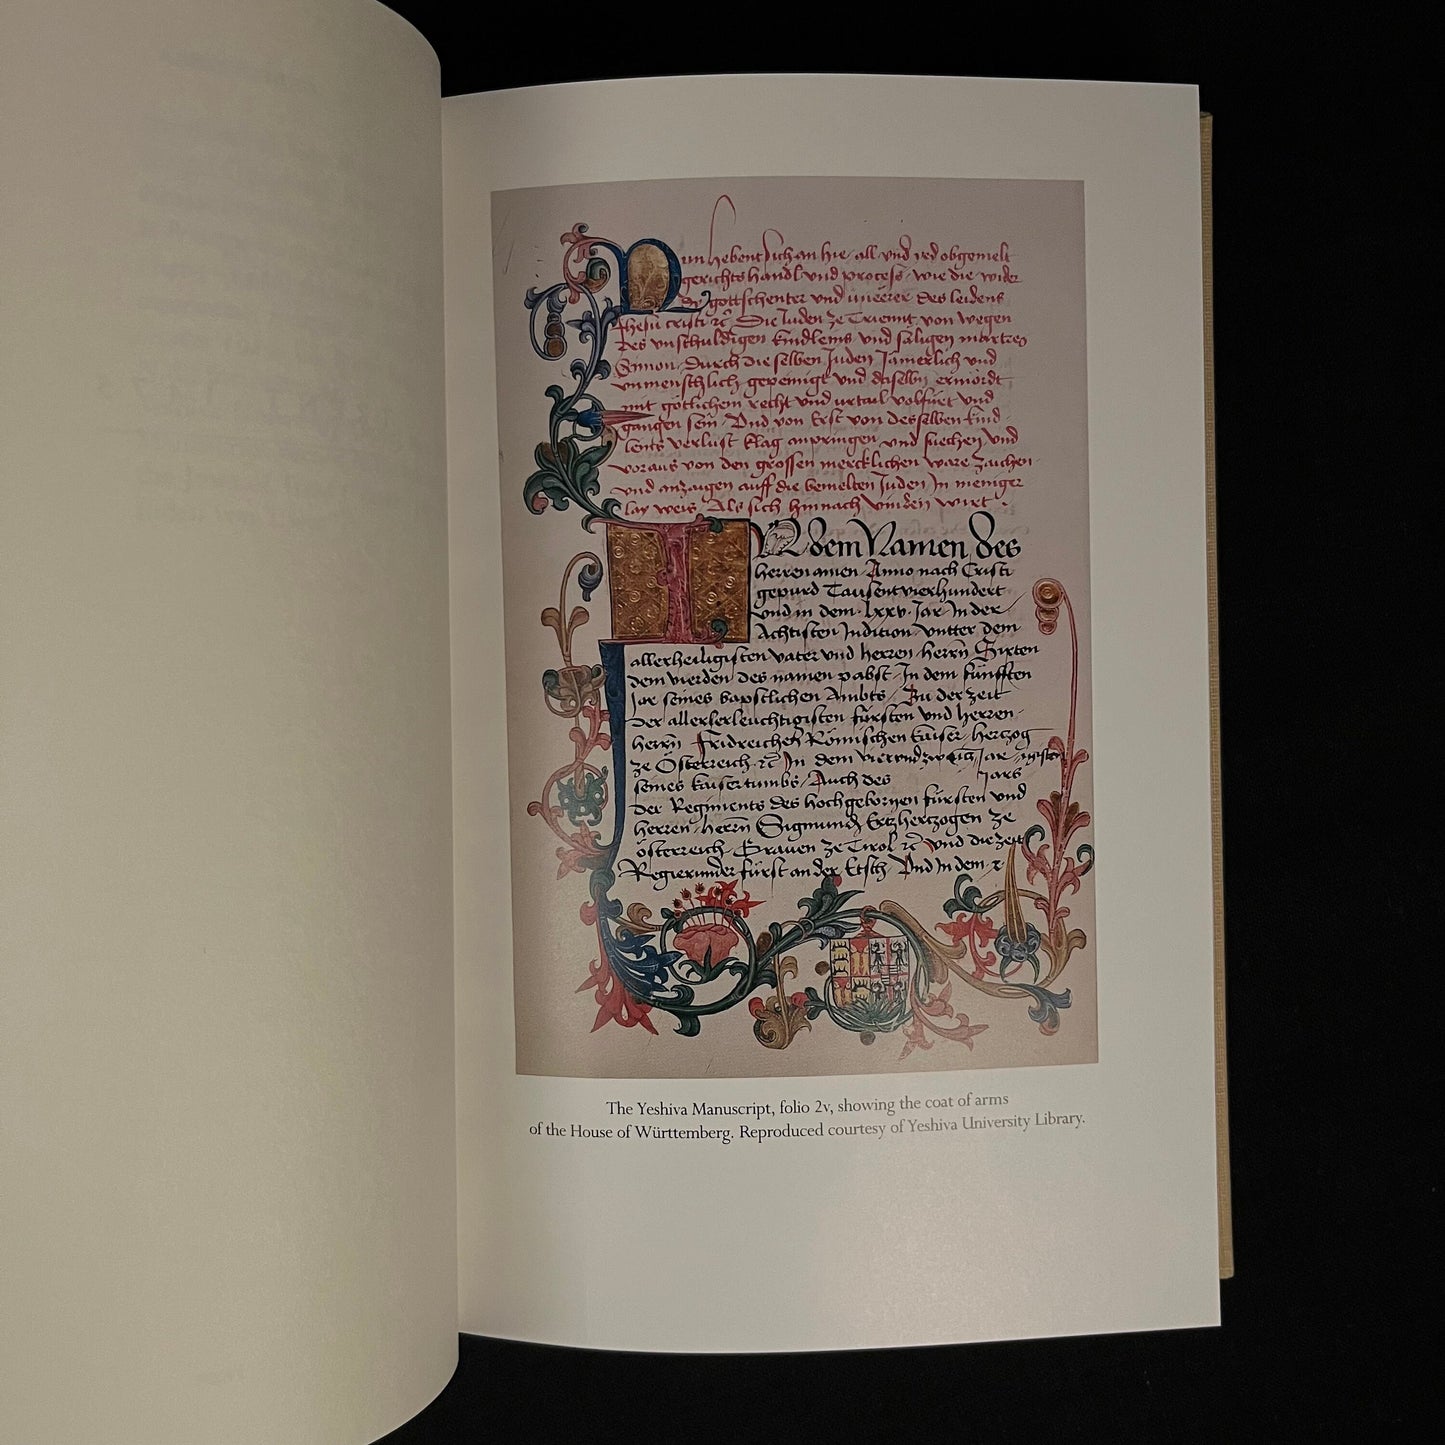 Nun hebent sich an hie all und yed obgemelt
gerichts handl und process wie die wider
dy gottschenter und uneerer des leidens
Jhesu cristi ɾc̄ Die Juden ze Trienntt von wegen
des unschuldigen kindleins und säligen martrers
Simon durch die selben Juden Jämerlich und
unmenschlich gepeinigt und daselbn ermördt
mit götlichem recht und urtail volfürt und
gangen sein Und von Erst von desselben kind
lents verlust klag anpringen und suechen und
voraus von den grossen mercklichen ware zaichen
und anzaigen auff die bemelten Juden In meniger
lay weis Als sich hinnach vinden wirt
IN dem Namen des
herren amen Anno nach Cristi
gepurd Tausent vierhundert
und in dem lxxv Jar In der
Achtisten Indition untter dem
allerheiligisten vater und herren herrn̄ Sixten
dem vierden des namen pabst In dem fünfften
Jar seines bapstlichen Ambts Zu der zeit
Der allerleuchtigisten fürsten und herren
herrn̄ Fridreichen Römischen kaiser hertzog
ze Österreich ɾc̄ In dem vierundzwainczigisten Jar
seines kaisertumbs Auch des Jars
der Regiments des hochgebornen fürsten und
herren herrn̄ Sigmund Ertzhertzogen ze
österreich Grauen ze Tirol ɾc̄ und die zeit
Regierunder fürst an der Etsch Und In dem
The Yeshiva Manuscript, folio 2v, showing the coat of arms
of the House of Württemberg. Reproduced courtesy of Yeshiva University Library.